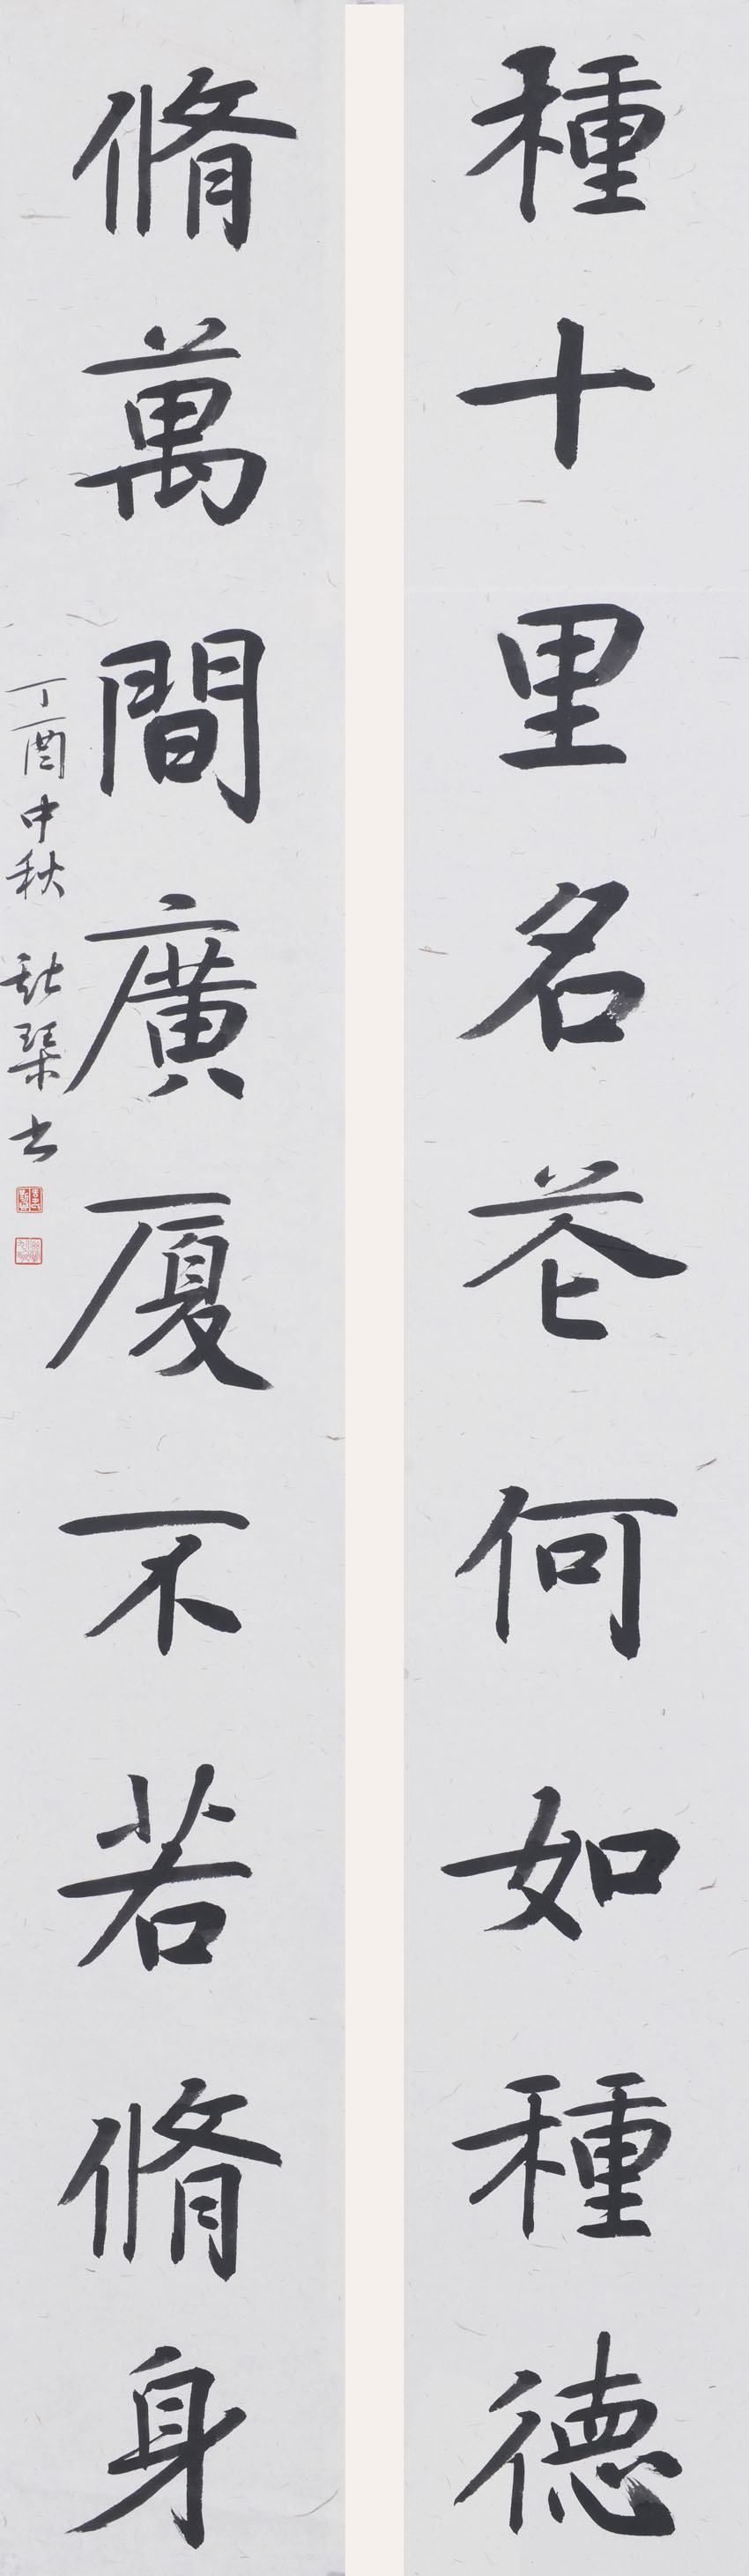 種十里名花何如種德
脩萬間廣厦不若脩身
丁酉中秋 琴書